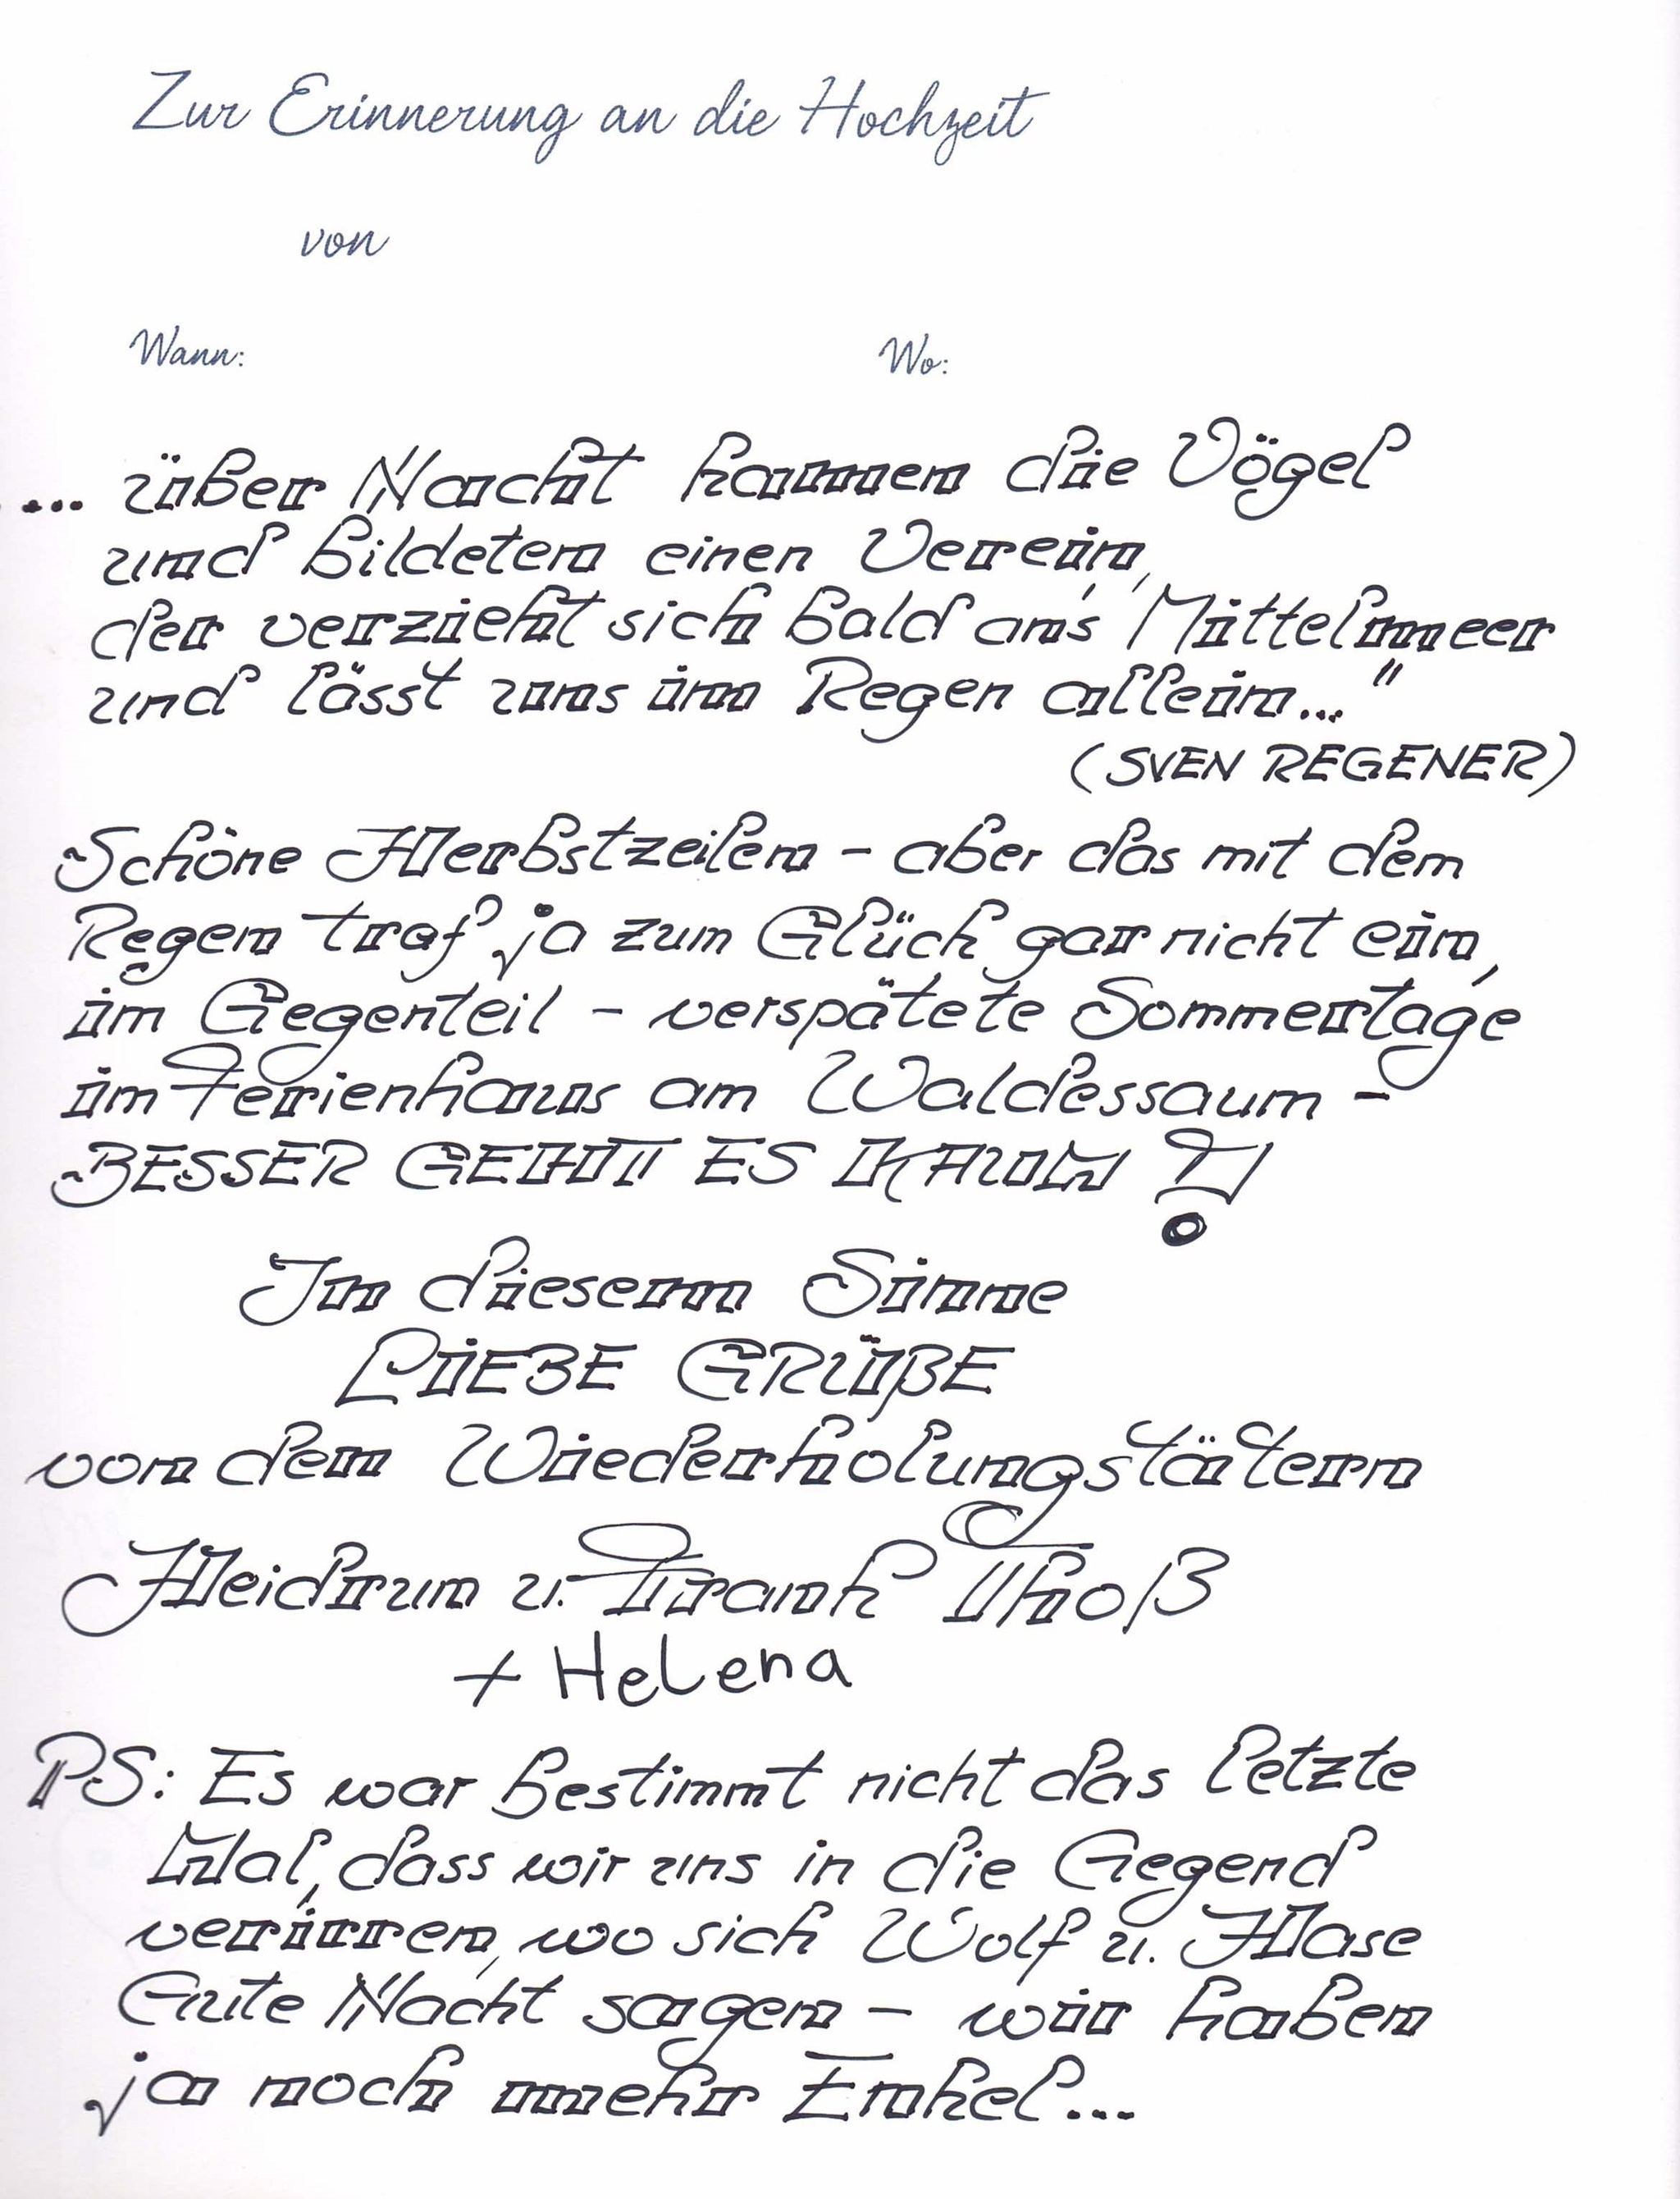 Zur Erinnerung an die Hochzeit
von
Wann: Wo:
... über Nacht kamen die Vögel
und bildeten einen Verein,
der verzieht sich bald an's Mittelmeer
und lässt uns im Regen allein..."
(SVEN REGENER)
Schöne Herbstzeilen - aber das mit dem
Regen traf ja zum Glück gar nicht ein,
im Gegenteil - verspätete Sommertage
im Ferienhaus am Waldessaum -
BESSER GEHT ES KAUM?!
In diesem Sinne
LIEBE GRÜßE
von den Wiederholungstätern
Heidrun u. Frank Thoß
+ Helena
PS: Es war bestimmt nicht das letzte
Mal, dass wir uns in die Gegend
verirren, wo sich Wolf u. Hase
Gute Nacht sagen - wir haben
ja noch mehr Enkel...